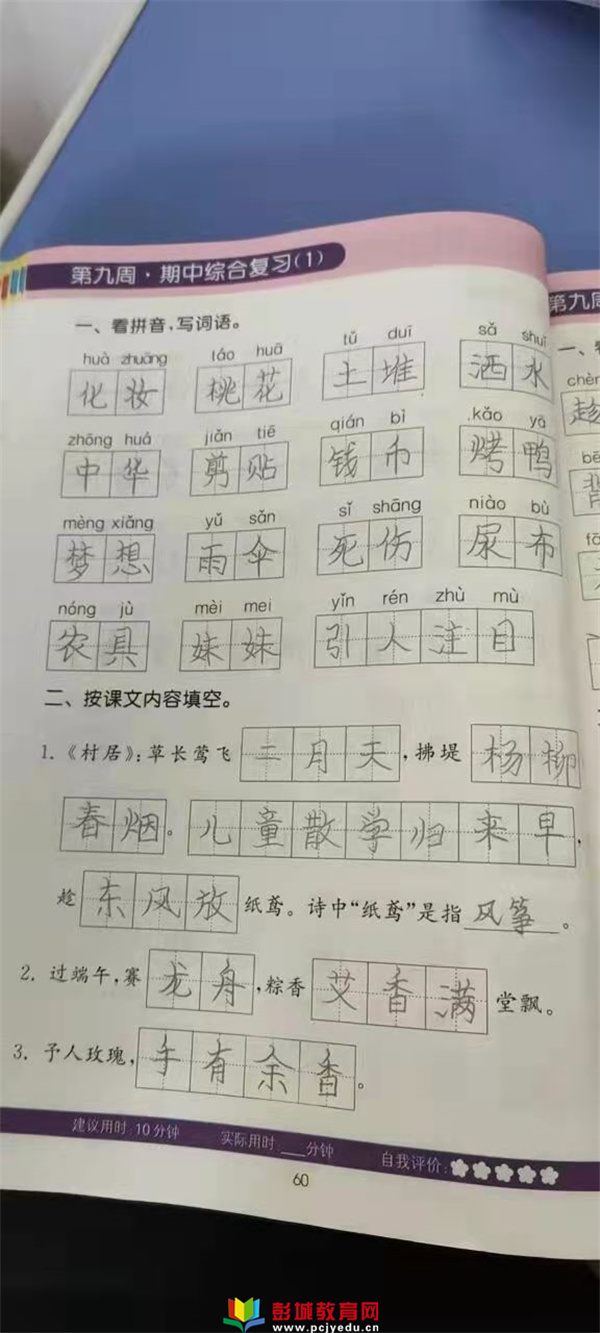 第九周·期中综合复习(1)
第九周
一、看拼音,写词语。
huà zhuāng táo huā tǔ duī sǎ shuǐ
化妆 桃花 土堆 洒水
zhōng huá jiǎn tiē qián bì kǎo yā
中华 剪贴 钱币 烤鸭
mèng xiǎng yǔ sǎn sǐ shāng niào bù
梦想 雨伞 死伤 尿布
nóng jù mèi mei yǐn rén zhù mù
农具 妹妹 引人注目
二、按课文内容填空。
1.《村居》:草长莺飞二月天,拂堤杨柳
春烟。儿童散学归来早,
趁东风放纸鸢。诗中“纸鸢”是指风筝。
2. 过端午,赛龙舟,粽香艾香满堂飘。
3. 予人玫瑰,手有余香。
建议用时:10分钟 实际用时:___分钟 自我评价:
60
彭城教育网
www.pcjyedu.cn